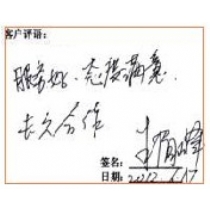 客户评语:
服务好、态度满意、
长久合作
签名:
日期: